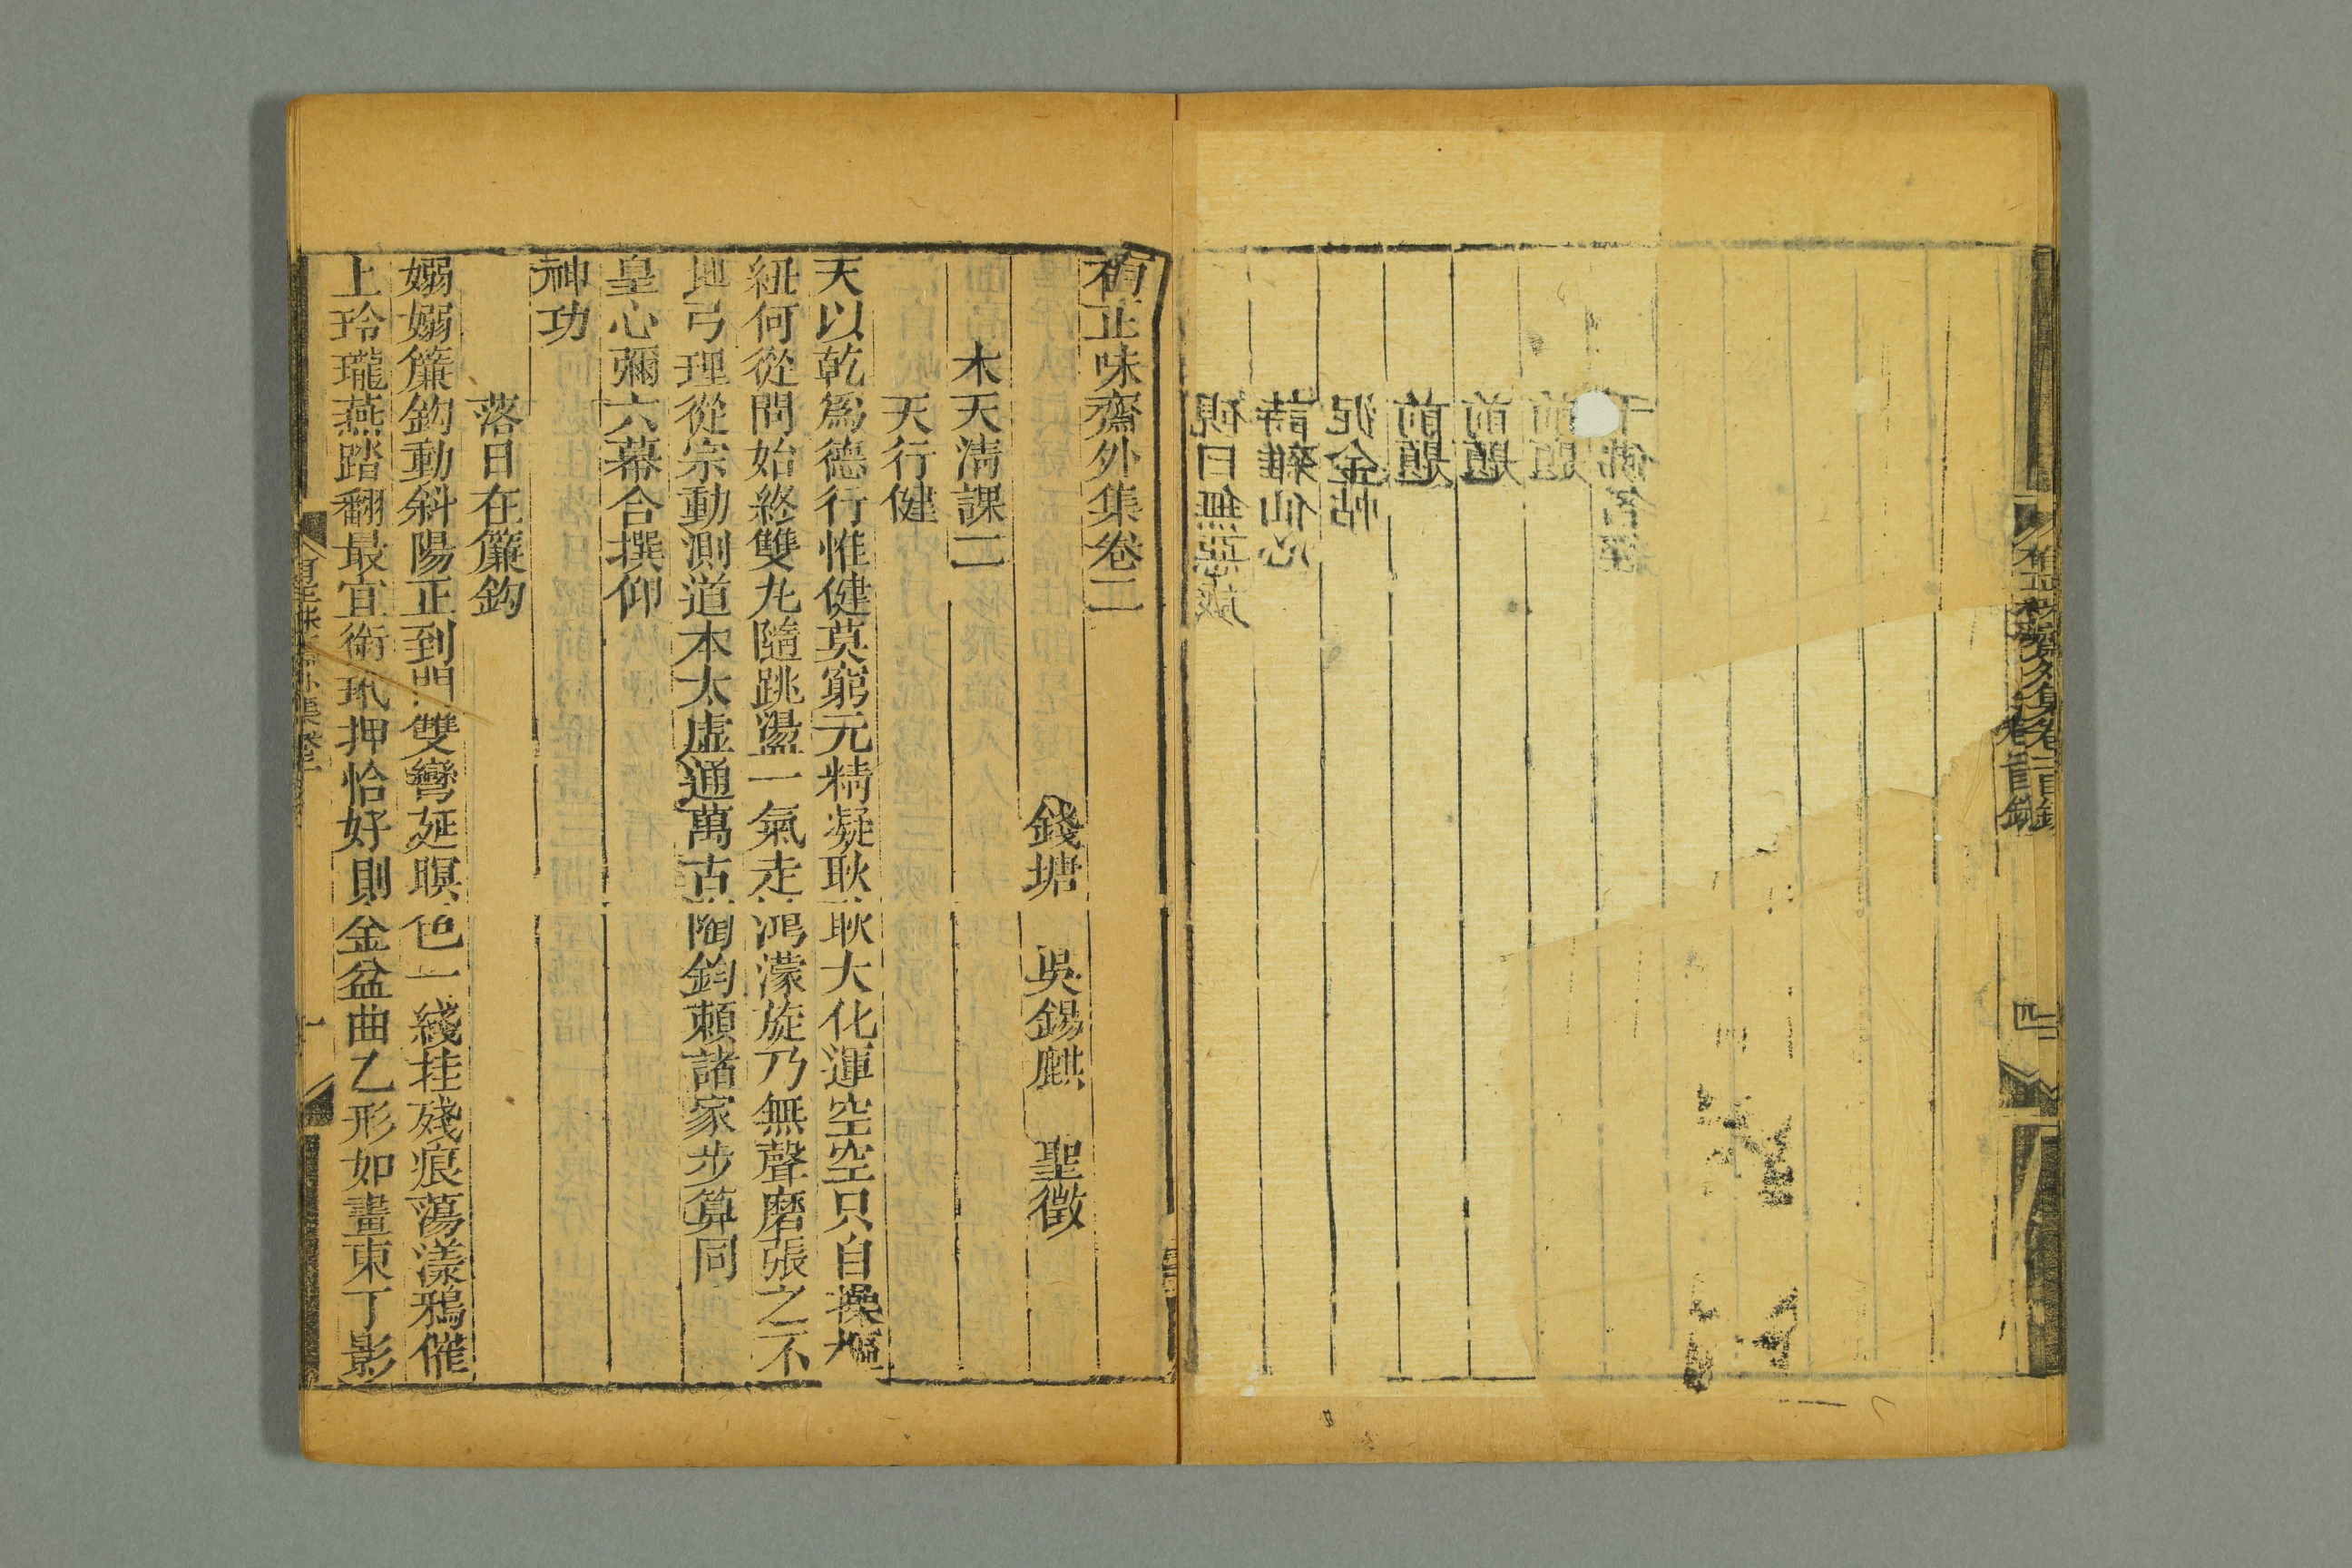 有正味齋外集卷二目錄
四
千佛名經
前題
前題
前題
泥金帖
詩雜仙心
硯田無惡歲
有正味齋外集卷二
錢塘 吳錫麒 聖徵
木天清課二
天行健
天以乾爲德行惟健莫窮元精凝耿耿大化運空空只自操樞
紐何從問始終雙丸隨跳盪一氣走鴻濛旋乃無聲磨張之不
地弓理從宗動測道本太虛通萬古陶鈞賴諸家步算同
皇心彌六幕合撰仰
神功
落日在簾鈎
嫋嫋簾鈎動斜陽正到門雙彎延暝色一綫挂殘痕蕩漾鴉催
上玲瓏燕踏翻最宜銜玳押恰好則金盆曲乙形如畫東丁影
有正味齋外集卷二
一